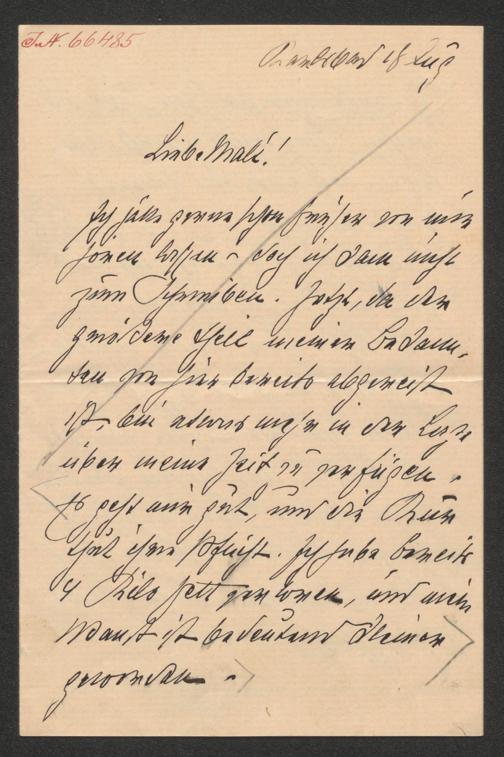 I.N. 66485
Karlsbad 18 Aug
Liebe Mali!
Ich hätte gerne schon früher von mir
hören lassen – doch ich kam nicht
zum Schreiben. Jetzt, da der
größere Theil meiner Bekann-
ten von hier bereits abgereist
ist, bin etwas mehr in der Lage
über meine Zeit zu verfügen.
Es geht mir gut, und die Kur
thut ihre Pflicht. Ich habe bereits
4 Kilo Fett verloren, und mein
Wanst ist bedeutend kleiner
geworden.